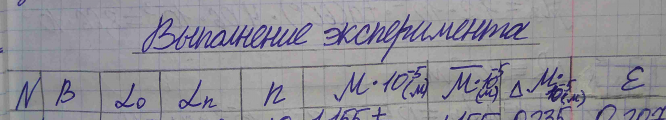 Выполнение эксперимента
N B α₀ αn n M·10⁻⁵(м) M̅·10⁻⁵(м) Δ M·10⁻⁵(м) ε